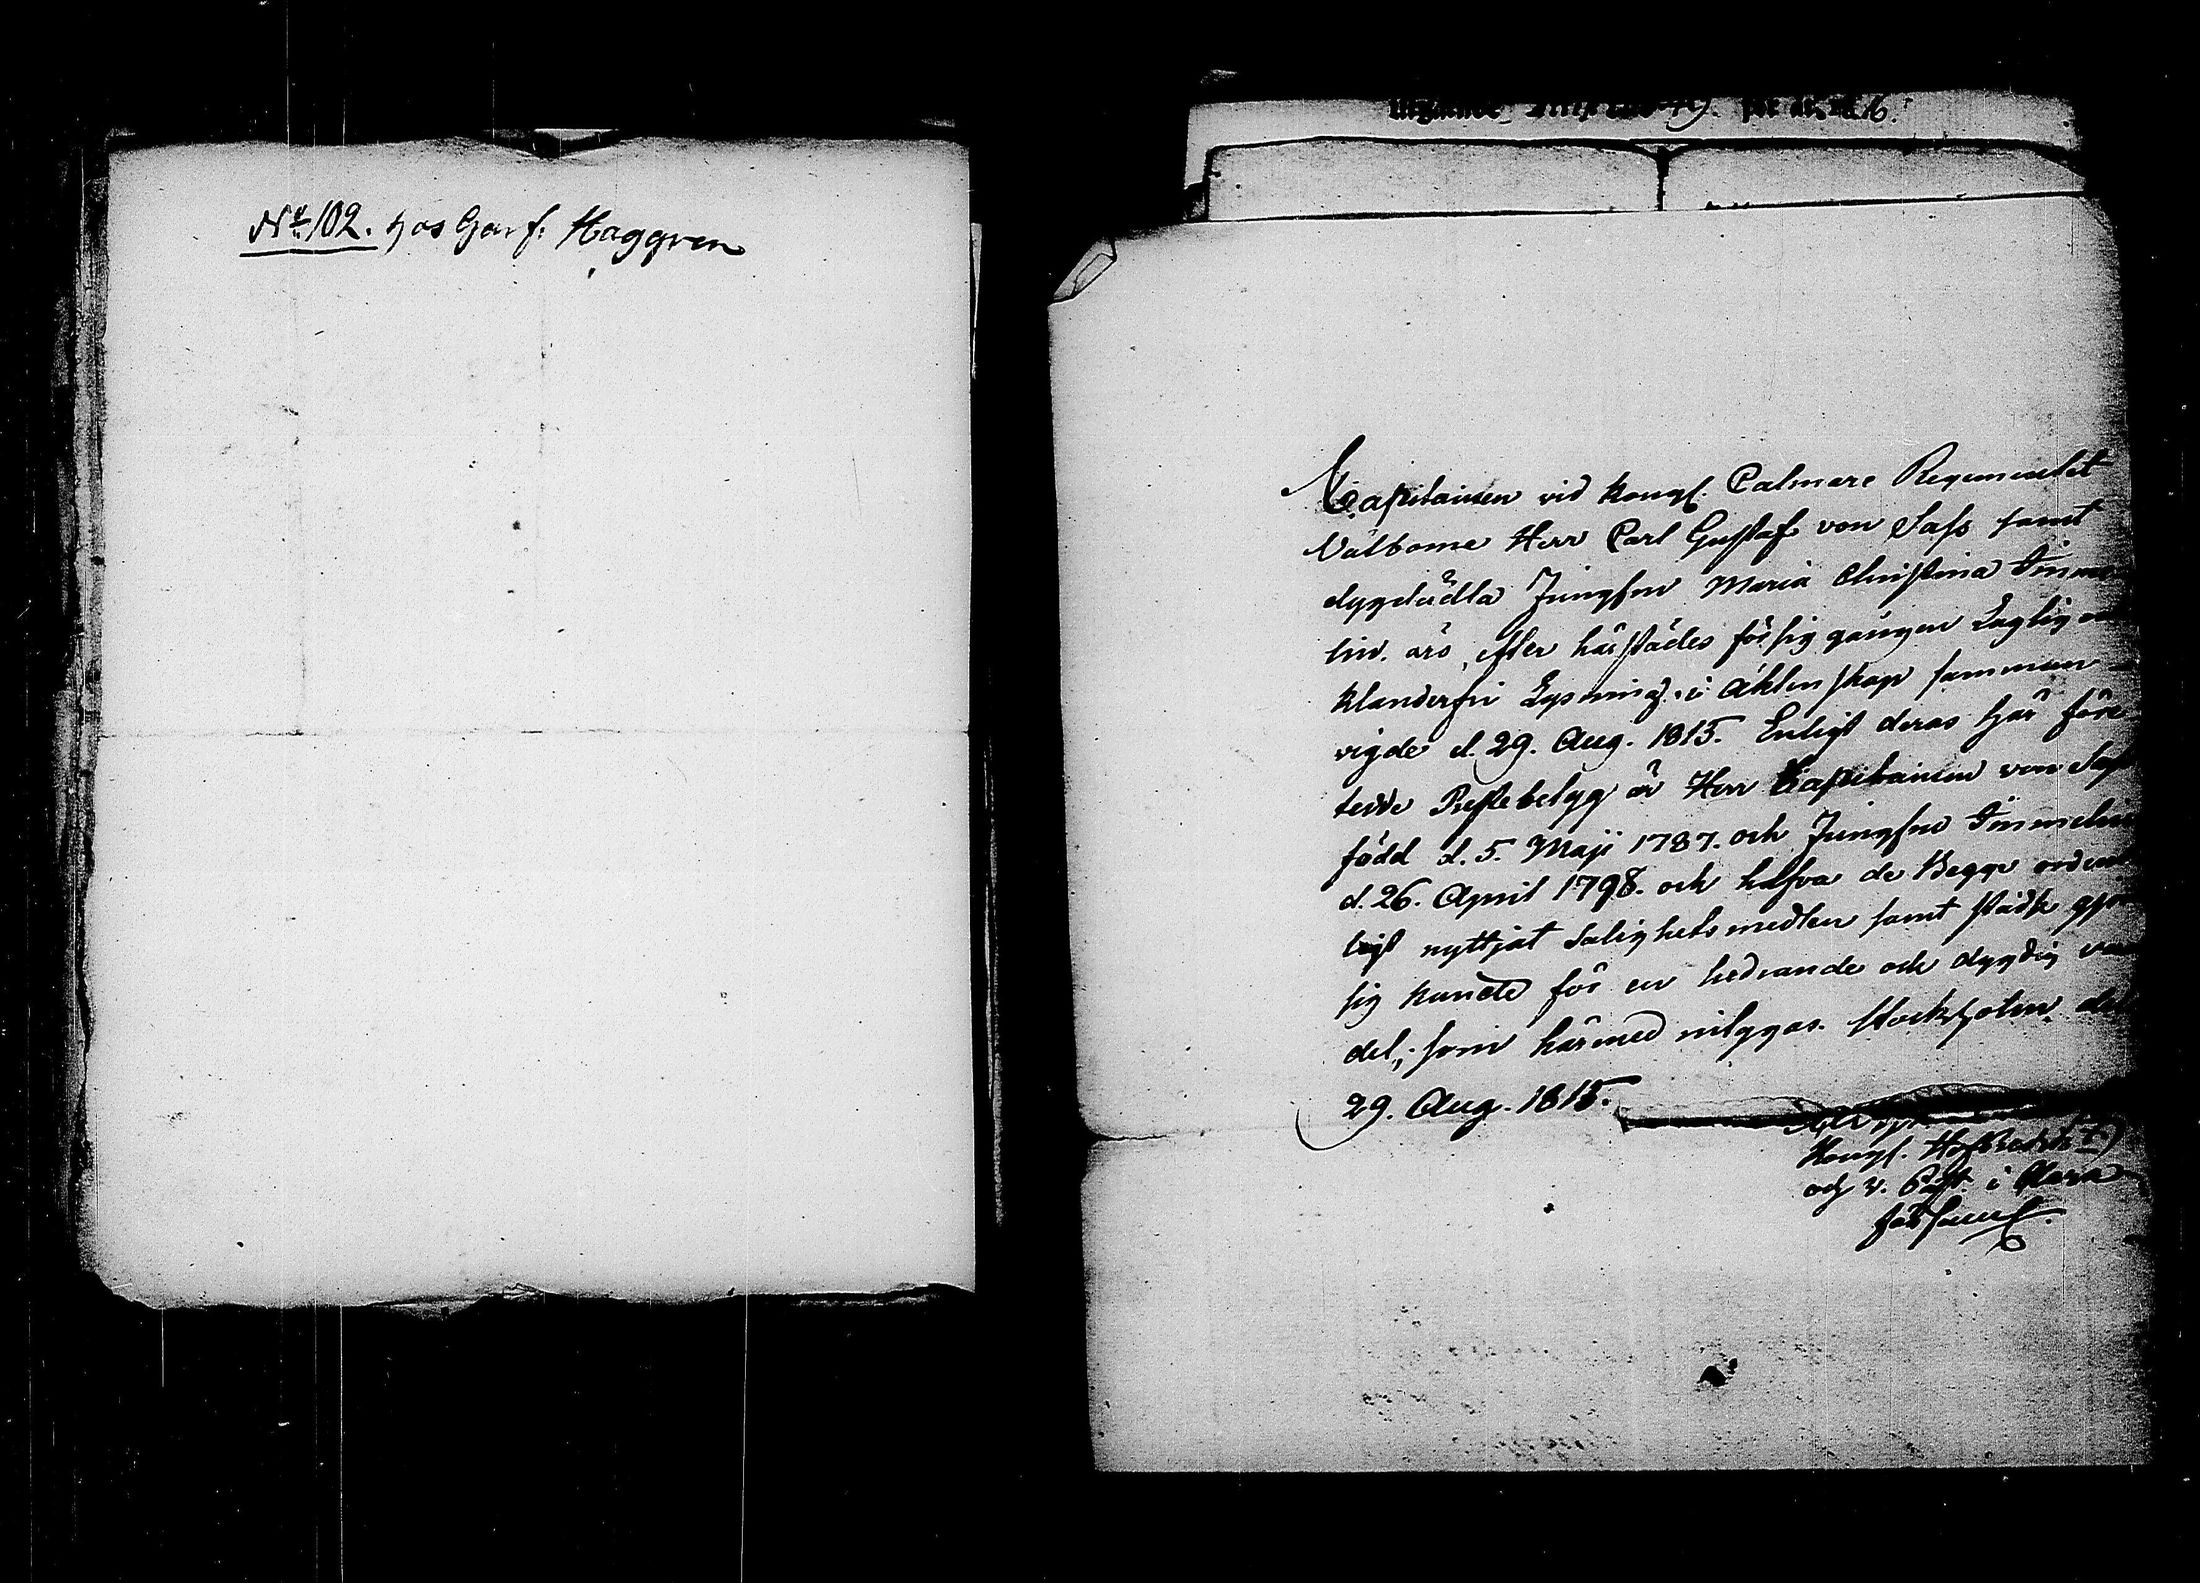 No 102. hos Garf. Haggren
Capitainen vid Kongl. Calmare Regementet
Välborne Herr Carl Gustaf von Sass samt
dygdädla Jungfru Maria Christina Timme
lin. äro, efter härstädes försig gången Laglig
klanderfri Lysning, i Äktenskap samman
vigde d. 29. Aug. 1815. Enligt deras här före
tedde Prestebetyg är Herr Capitainen von Sass
född d. 5. Maji 1787. och Jungfru Timmelin
d. 26. April 1798. och hafva de Begge orden
ligt nyttjat Salighetsmedlen samt städse
sig kände för en hedrande och dygdig van
del; som härmed intygas. Stockholm. den
29. Aug. 1815.
Kongl. Hofpredik
och v. Past. i Clara
församl.